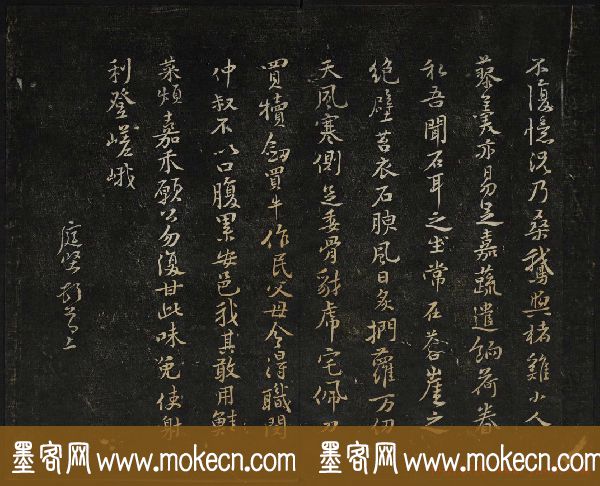 不復憶況乃桑鵝與楮雞小人
藜羹亦易足嘉蔬遣餉荷眷
私吾聞石耳之生常在蒼崖之
絕壁苔衣石腴風日炙捫蘿萬仞
天風寒側足委骨豺虎宅佩刀
買犢劒買牛作民父母今得職閔
仲叔不以口腹累安邑我其敢用鮭
菜煩嘉禾願公勿復甘此味免使射
利登嵯峨
庭堅頓首上
墨客网 www.mokecn.com 墨客网 www.mokecn.com